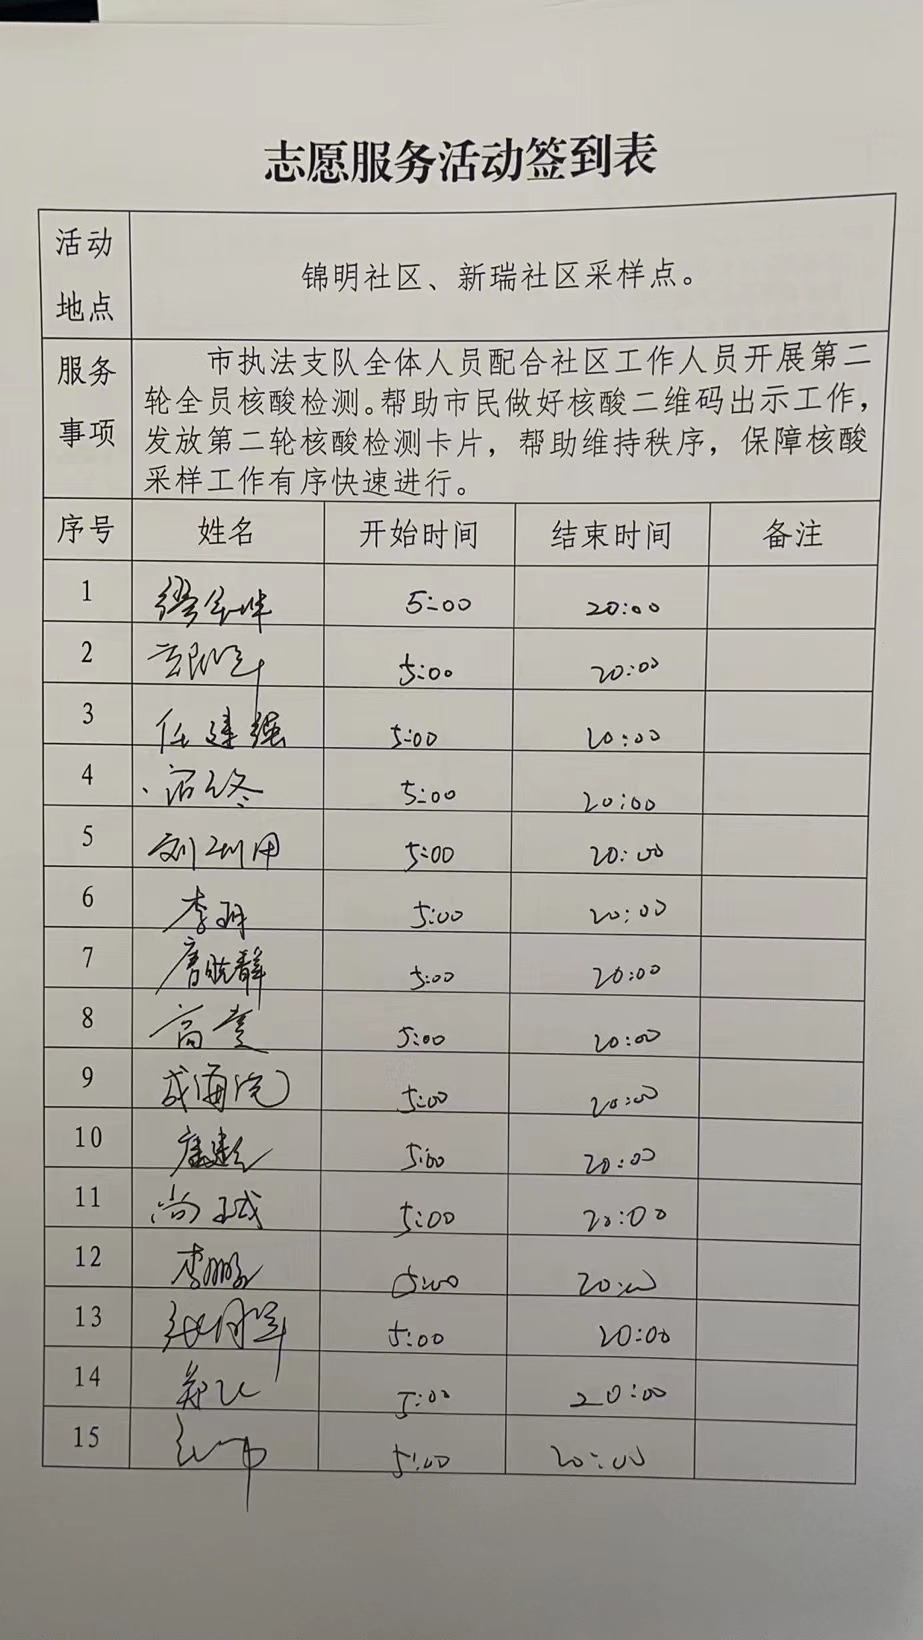 志愿服务活动签到表
活动地点 锦明社区、新瑞社区采样点。
服务事项 市执法支队全体人员配合社区工作人员开展第二
轮全员核酸检测。帮助市民做好核酸二维码出示工作，
发放第二轮核酸检测卡片，帮助维持秩序，保障核酸
采样工作有序快速进行。
序号 姓名 开始时间 结束时间 备注
1 5:00 20:00
2 5:00 20:00
3 任建强 5:00 20:00
4 5:00 20:00
5 5:00 20:00
6 5:00 20:00
7 5:00 20:00
8 5:00 20:00
9 5:00 20:00
10 5:00 20:00
11 5:00 20:00
12 李鹏 5:00 20:00
13 5:00 20:00
14 5:00 20:00
15 5:00 20:00